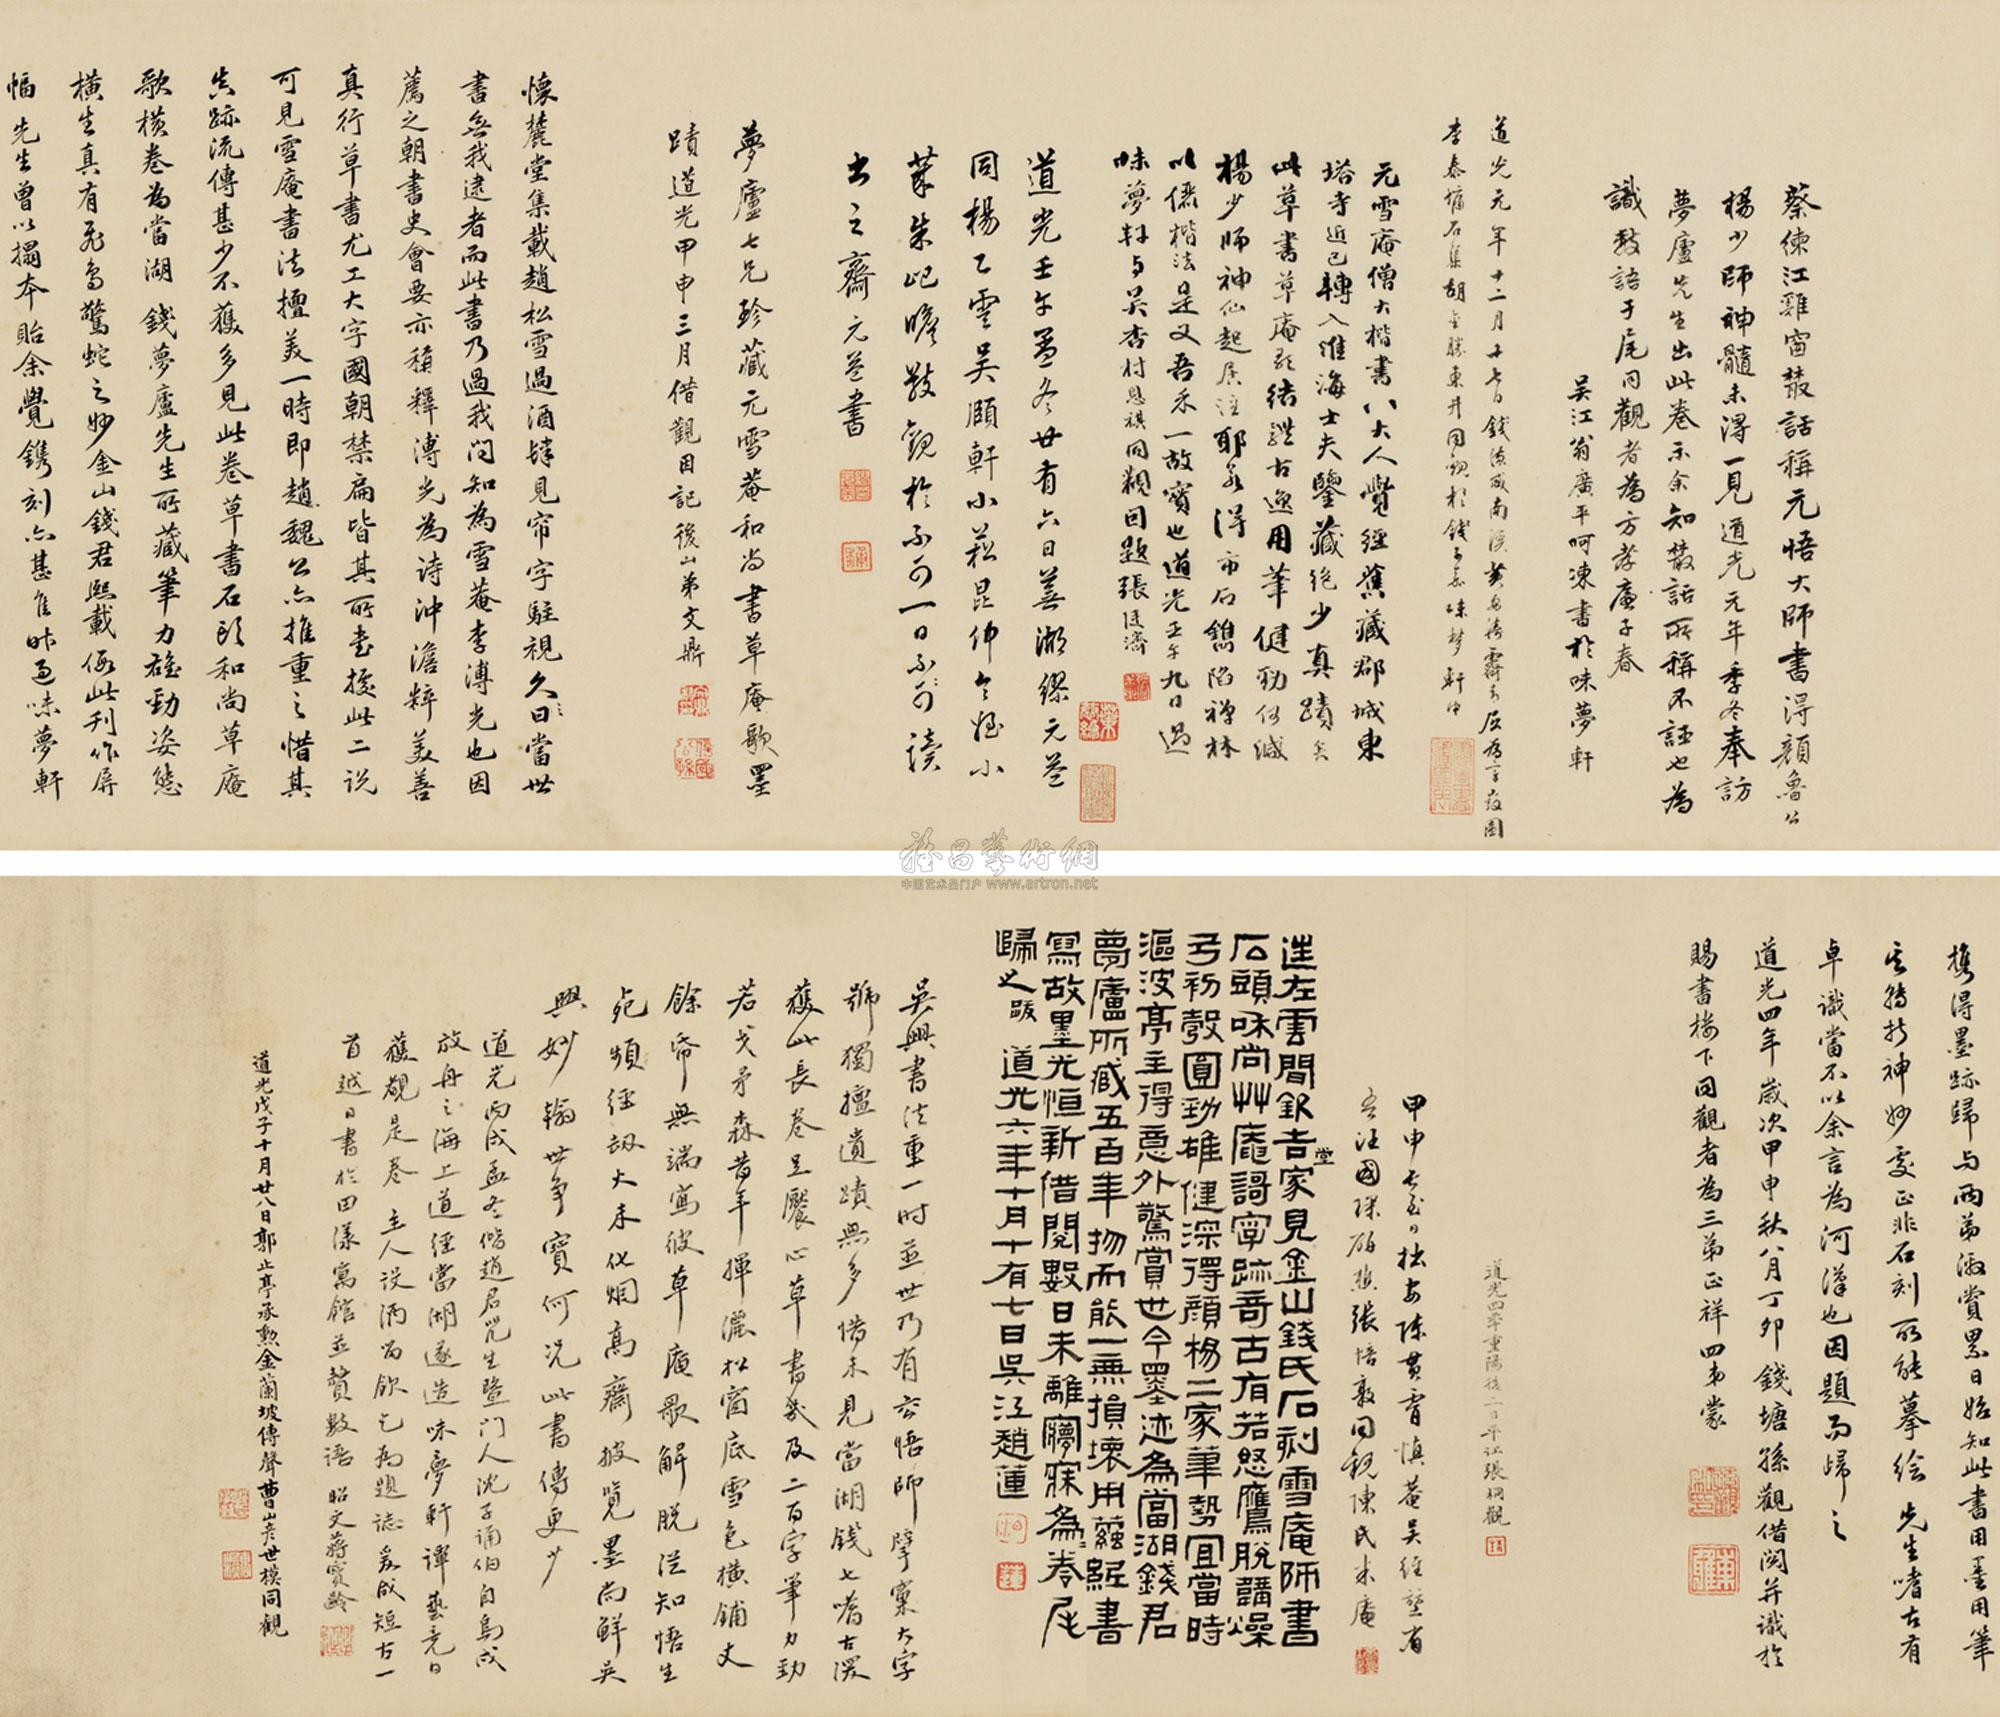 蔡練江雞窗叢話稱元悟大師書得顏魯公
楊少師神髓未得一見道光元年季冬奉訪
夢廬先生出此卷示余知叢話所稱不誣也為
識數語于尾同觀者為方孝廉子春
吳江翁廣平呵凍書於味夢軒
道光元年十二月十七日錢
元雪庵僧大楷書八大人覺經舊藏郡城東
塔寺近已轉入淮海士夫鑒藏絕少真蹟矣
此草書草庵歌結體古逸用筆健勁何減
楊少師神仙起居注耶若得市石鐫陷禪林
以儷楷法是又吾禾一故實也道光壬午九日過
味夢軒与吳杏村恩祺同觀回題張廷濟
道光壬午孟冬廿有六日蕪湖繆元益
同楊乙雲吳頤軒小菘昆仲令姪小
蒙朱
出之齋元益書
夢廬七兄珍藏元雪菴和尚書草庵歌墨
蹟道光甲申三月借觀因記後山弟文鼎
懷麓堂集載趙松雪過酒肆見帘字駐視久之曰當世
書無我逮者而此書乃過我問知為雪菴李溥光也因
薦之朝書史會要亦稱釋溥光為詩沖澹粹美善
真行草書尤工大字國朝禁扁皆其所書據此二說
可見雪庵書法擅美一時即趙魏公亦推重之惜其
真跡流傳甚少不獲多見此卷草書石頭和尚草庵
歌橫卷為當湖錢夢廬先生所藏筆力雄勁姿態
橫生真有飛鳥驚蛇之妙金山錢君熙載假此刊作屏
幅先生曾以搨本貽余覺鐫刻亦甚佳昨過味夢軒
攜得墨跡歸与兩弟激賞累日始知此書用墨用筆
其轉折神妙處正非石刻所能摹繪先生嗜古有
卓識當不以余言為河漢也因題而歸之
道光四年歲次甲申秋八月丁卯錢塘孫觀借閱并識於
賜書樓下同觀者為三弟正祥四弟蒙
道光四年重陽後一日平江張
甲申長至日拙安陳貫霄慎菴吳經堃省
吾汪國
迮左雲間欽吉堂家見金山錢氏石刻雪庵師書
石頭和尚艸庵謌字跡奇古有若怒鷹脫韝燥
弓初彀圓勁雄健深得顏楊二家筆勢宜當時
漚波亭主得意外驚賞世今墨迹為當湖錢君
夢廬所臧五百年物而能一無損壞用蠒紙書
寫故墨光恒新借閱數日未離寢寐為卷尾
歸之跋 道光六年十月十有七日吳江趙蓮
吳興書法重一時並世乃有玄悟師擘窠大字
號獨擅遺蹟無多惜未見當湖錢七嗜古深
獲此長卷足饜心草書幾及二百字筆力勁
若戈矛森昔年揮灑松窗底雪色橫鋪丈
餘紙無端寫彼草庵歌解脫從知悟生
死頻經劫火未化烟高齋披覽墨尚鮮吳
興妙翰世爭寶何況此書傳更少
道光丙戌孟冬偕趙君凡生暨門人沈子誦伯自烏戍
放舟之海上道經當湖遂造味夢軒譚藝竟日
獲觀是卷 主人設酒留飲乞為題誌爰成短古一
首越日書於田漾寓館並贅數語 昭文蔣寶齡
道光戊子十月廿八日郭止亭承勲金蘭坡傳聲曹山彥世模同觀
雅昌藝術網
中国艺术品门户 www.artron.net